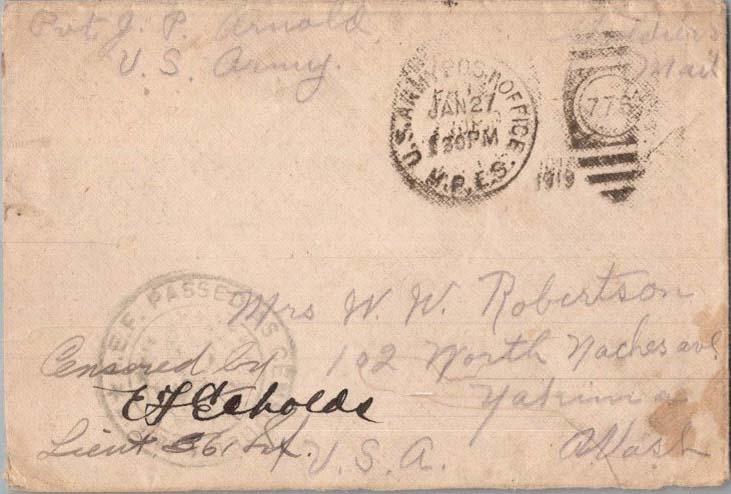 Pvt. J. P. Arnold
U. S. Army.
Soldiers
Mail
U.S. ARMY POST OFFICE
JAN 27
30 PM
M.P.E.S.
1919
A.E.F. PASSED AS CEN
Mrs W. W. Robertson
102 North Naches ave
Yakima
Wash
U. S. A.
Censored by
Lieut. 361 Inf.